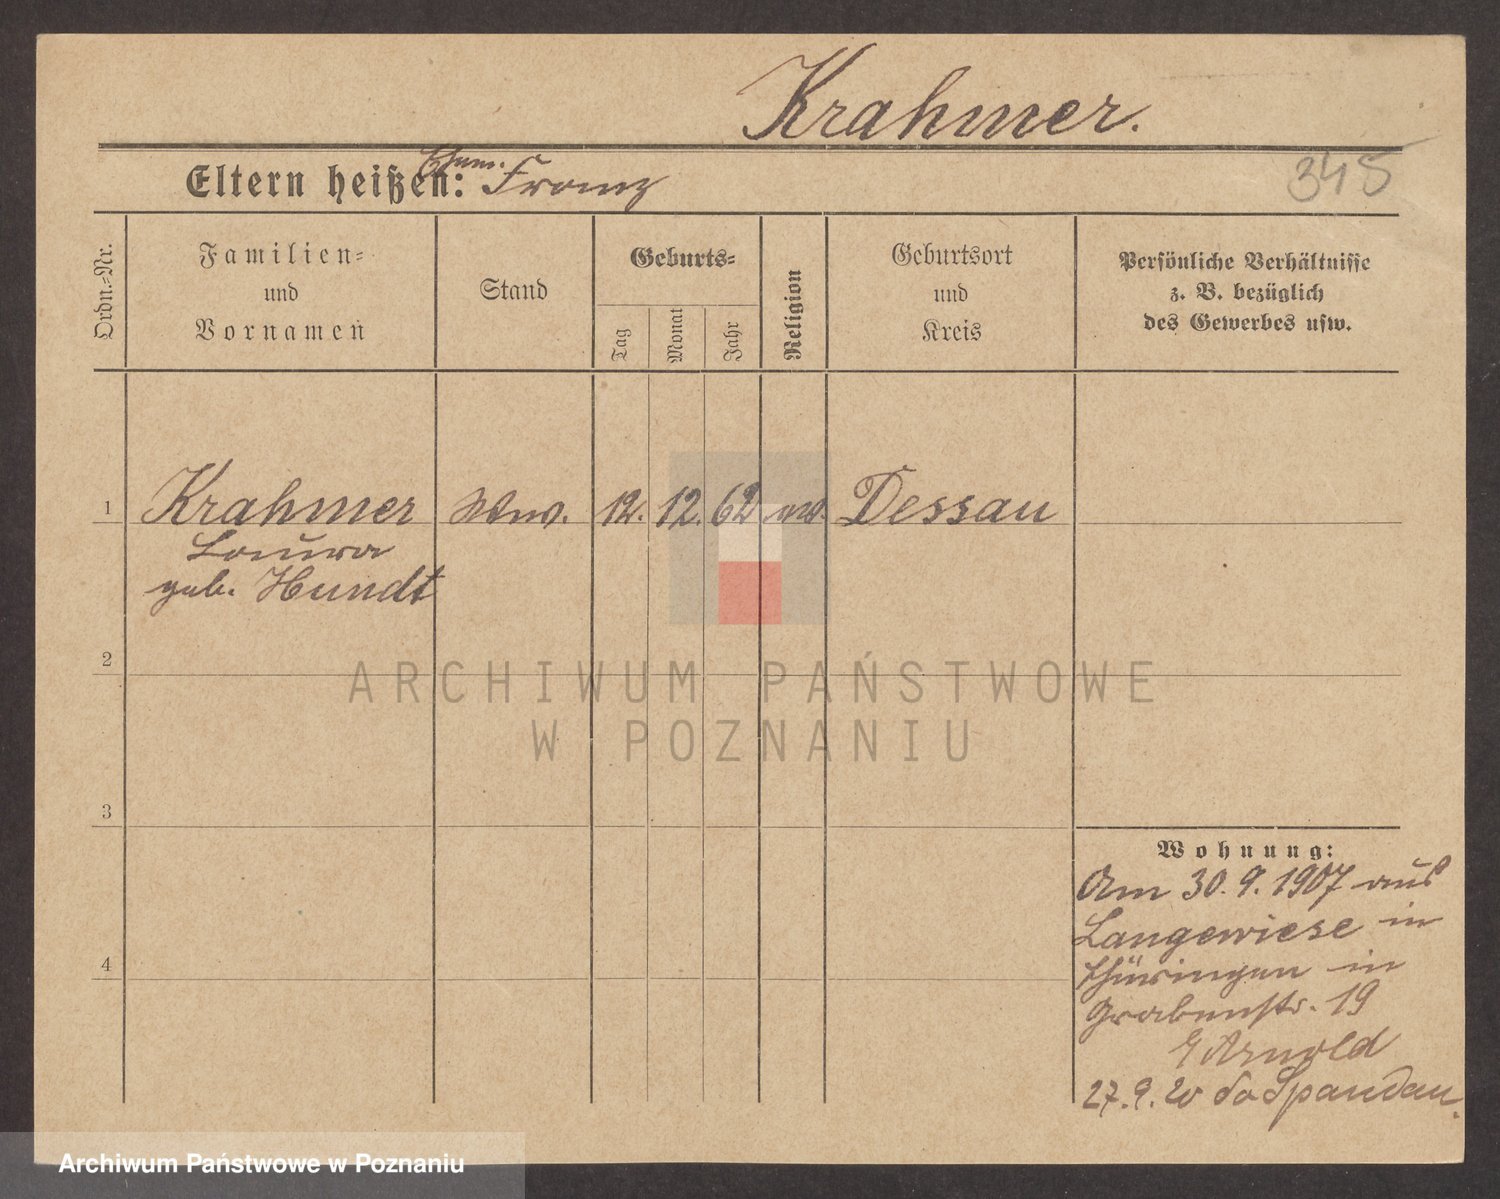 Krahmer.
345
Ehem.
Eltern heißen: Franz
Ordn.-Nr.
Familien-
und
Vornamen
Stand
Geburts-
Tag
Monat
Jahr
Religion
Geburtsort
und
Kreis
Persönliche Verhältnisse
z. B. bezüglich
des Gewerbes usw.
1 Krahmer Wwe. 12. 12. 62 ev. Dessau
Laura
geb. Hundt
2
ARCHIWUM PAŃSTWOWE
W POZNANIU
3
Wohnung:
Am 30. 9. 1907 aus
Langewiese in
4
Thüringen in
Grabenstr. 19
Arnold
27. 9. 20 Spandau.
Archiwum Państwowe w Poznaniu